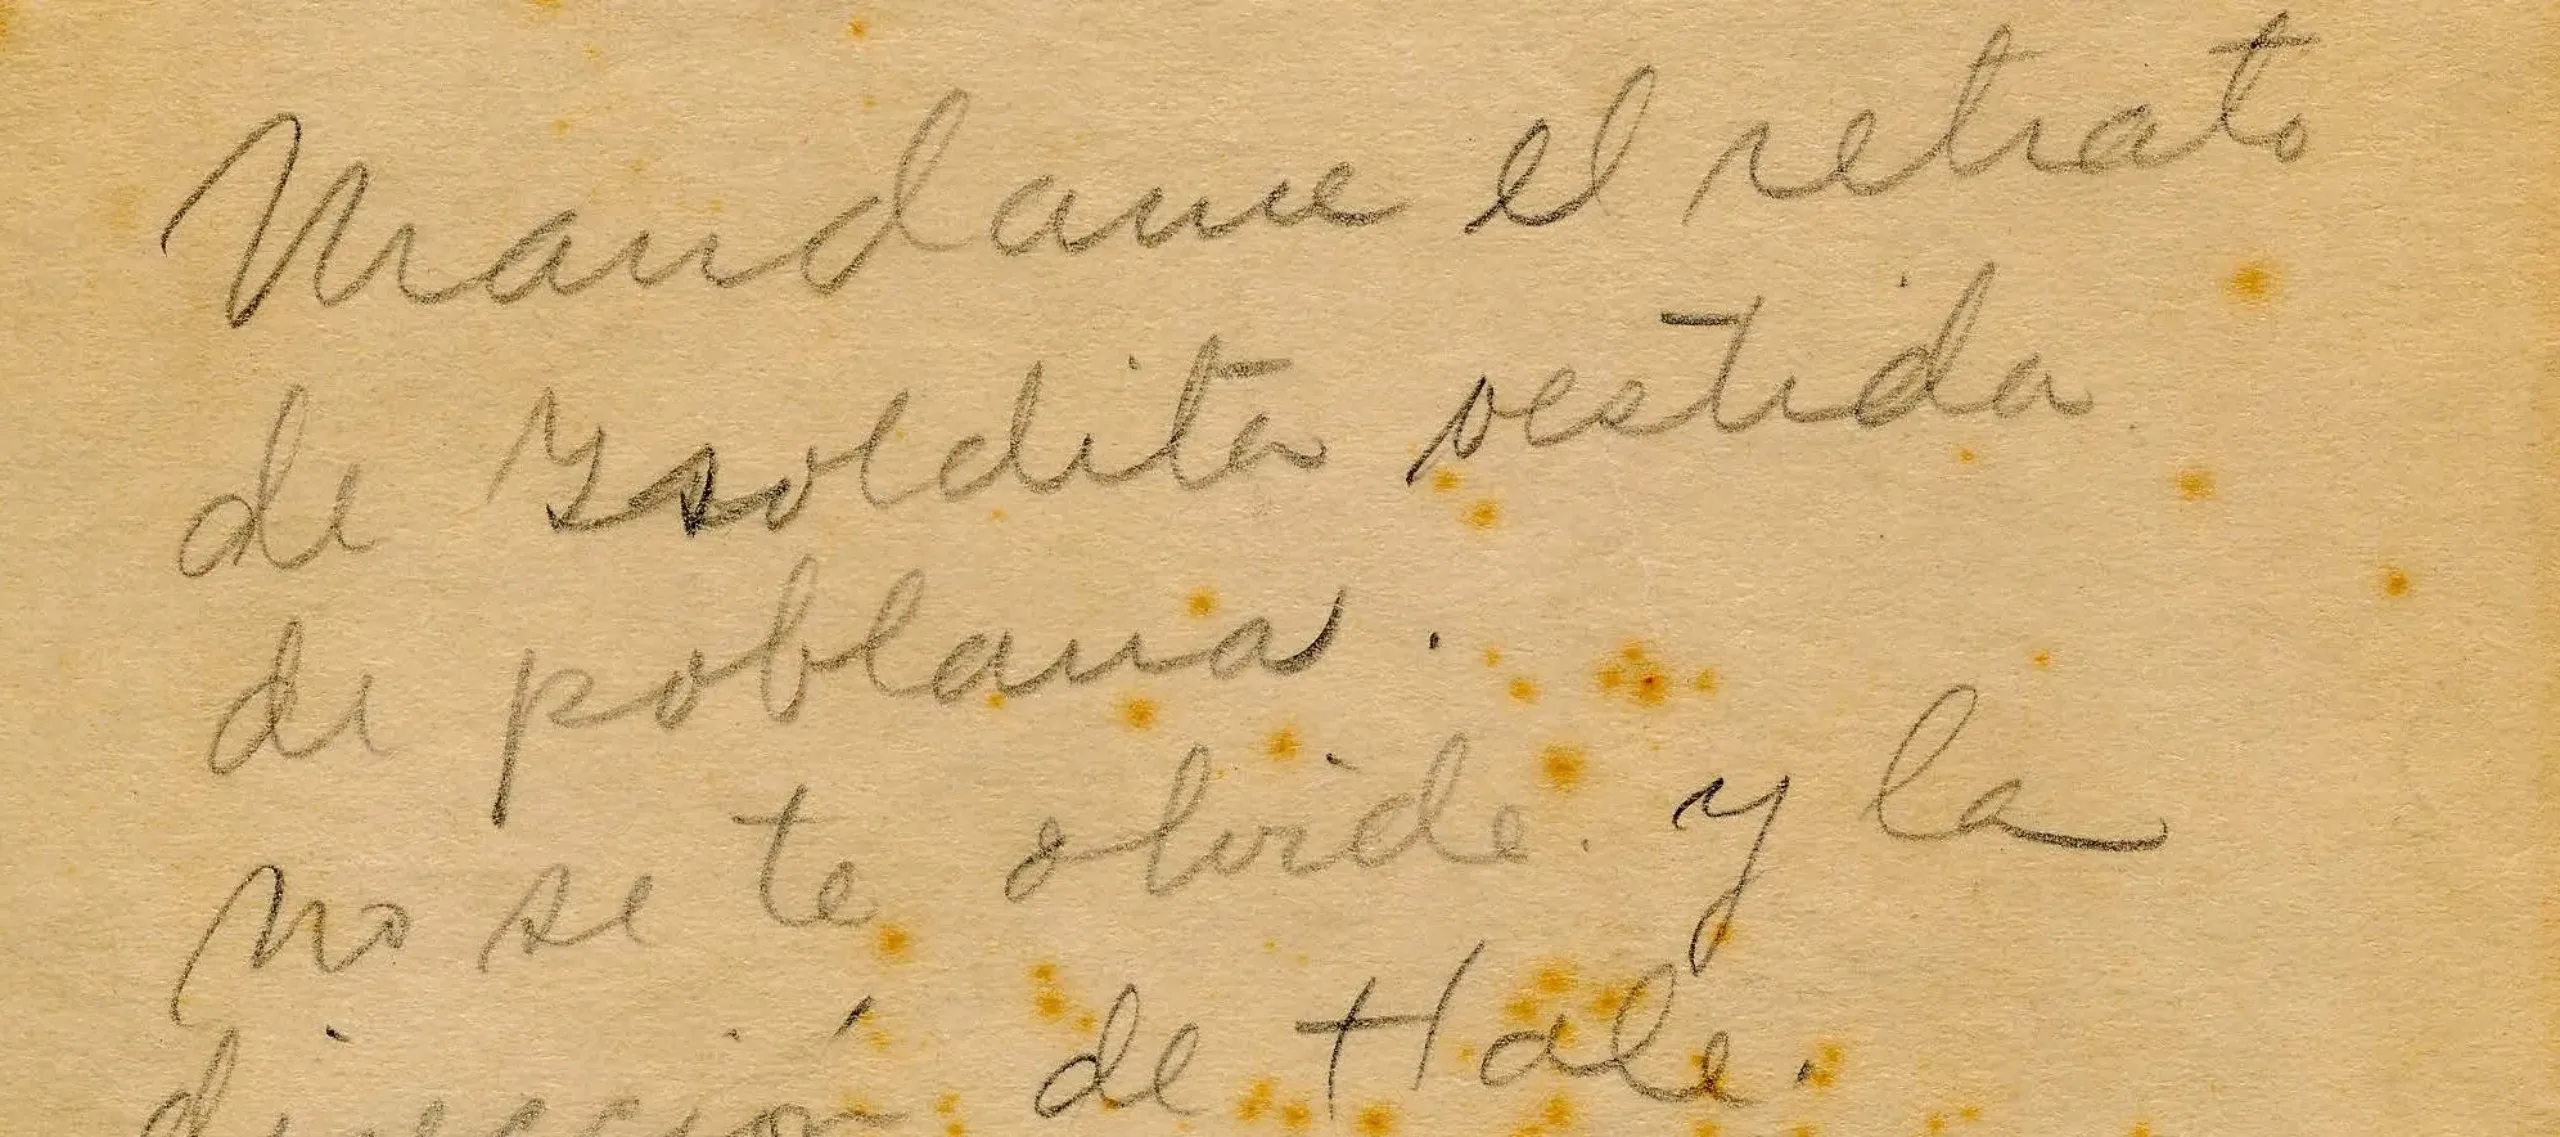 Mandame el retrato
de Ysoldita vestida
de poblana.
No se te olvide. y la
dirección de Hale.